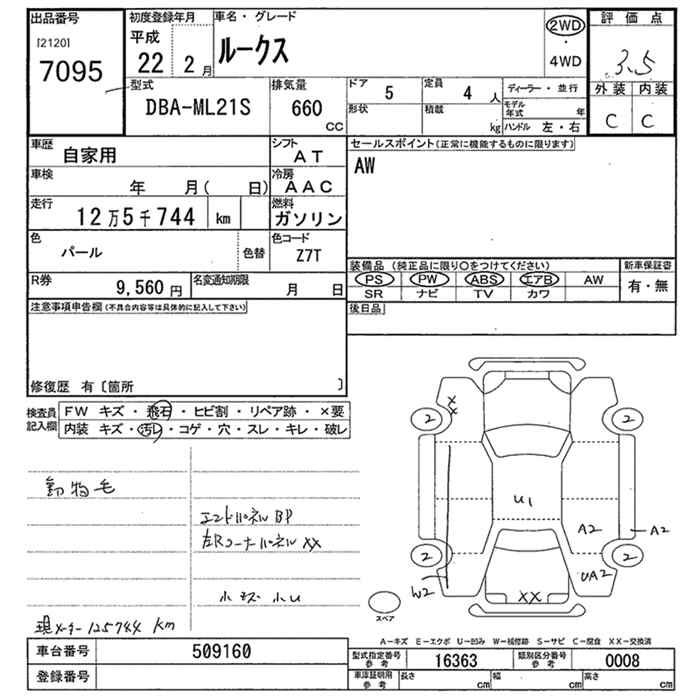 出品番号
[2120]
7095
初度登録年月
平成
22 2 月
車名・グレード
ルークス
2WD
・
4WD
評価点
3.5
外装 内装
C C
型式
DBA-ML21S
排気量
660
CC
ドア 5
定員 4 人
形状
積載 kg
ディーラー・並行
モデル年式 年
ハンドル 左・右
車歴 自家用
シフト AT
車検 年 月( 日)
冷房 AAC
走行 12万5千744 km
燃料 ガソリン
色 パール
色替
色コード Z7T
R券 9,560 円
名変通知期限 月 日
セールスポイント(正常に機能するものに限ります)
AW
装備品(純正品に限り○をつけてください)
PS PW ABS エアB AW
SR ナビ TV カワ
新車保証書
有・無
後日品
注意事項申告欄(不具合内容等は具体的に記入して下さい)
修復歴 有〔箇所 〕
検査員記入欄
FW キズ・飛石・ヒビ割・リペア跡・×要
内装 キズ・汚レ・コゲ・穴・スレ・キレ・破レ
動物毛
エンドパネルBP
左Rコーナーパネル XX
小キズ 小U
現メーター125744 km
X
X
2
2
2
2
U1
A2
A2
UA2
W2
XX
スペア
A-キズ E-エクボ U-凹み W-補修跡 S-サビ C-腐食 XX-交換済
車台番号 509160
登録番号
型式指定番号 参考 16363
類別区分番号 参考 0008
車庫証明用 参考
長さ cm
幅 cm
高さ cm